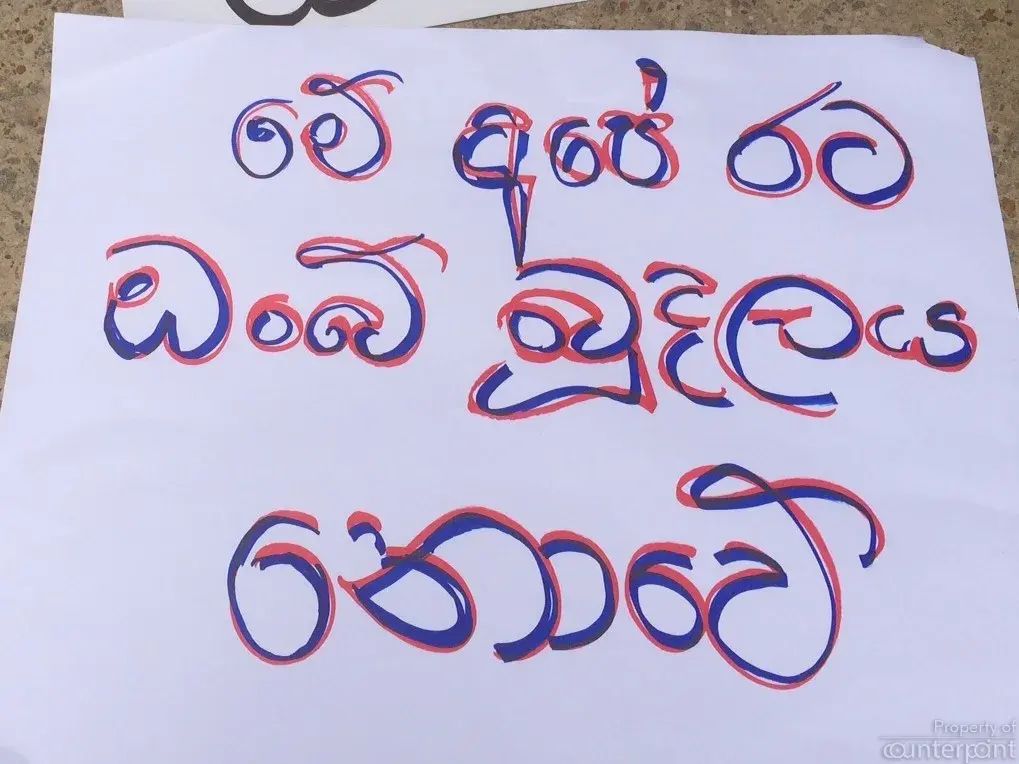 මේ අපේ රට
ඩංබ් බූදලය
නොවේ
Property of
counterpoint